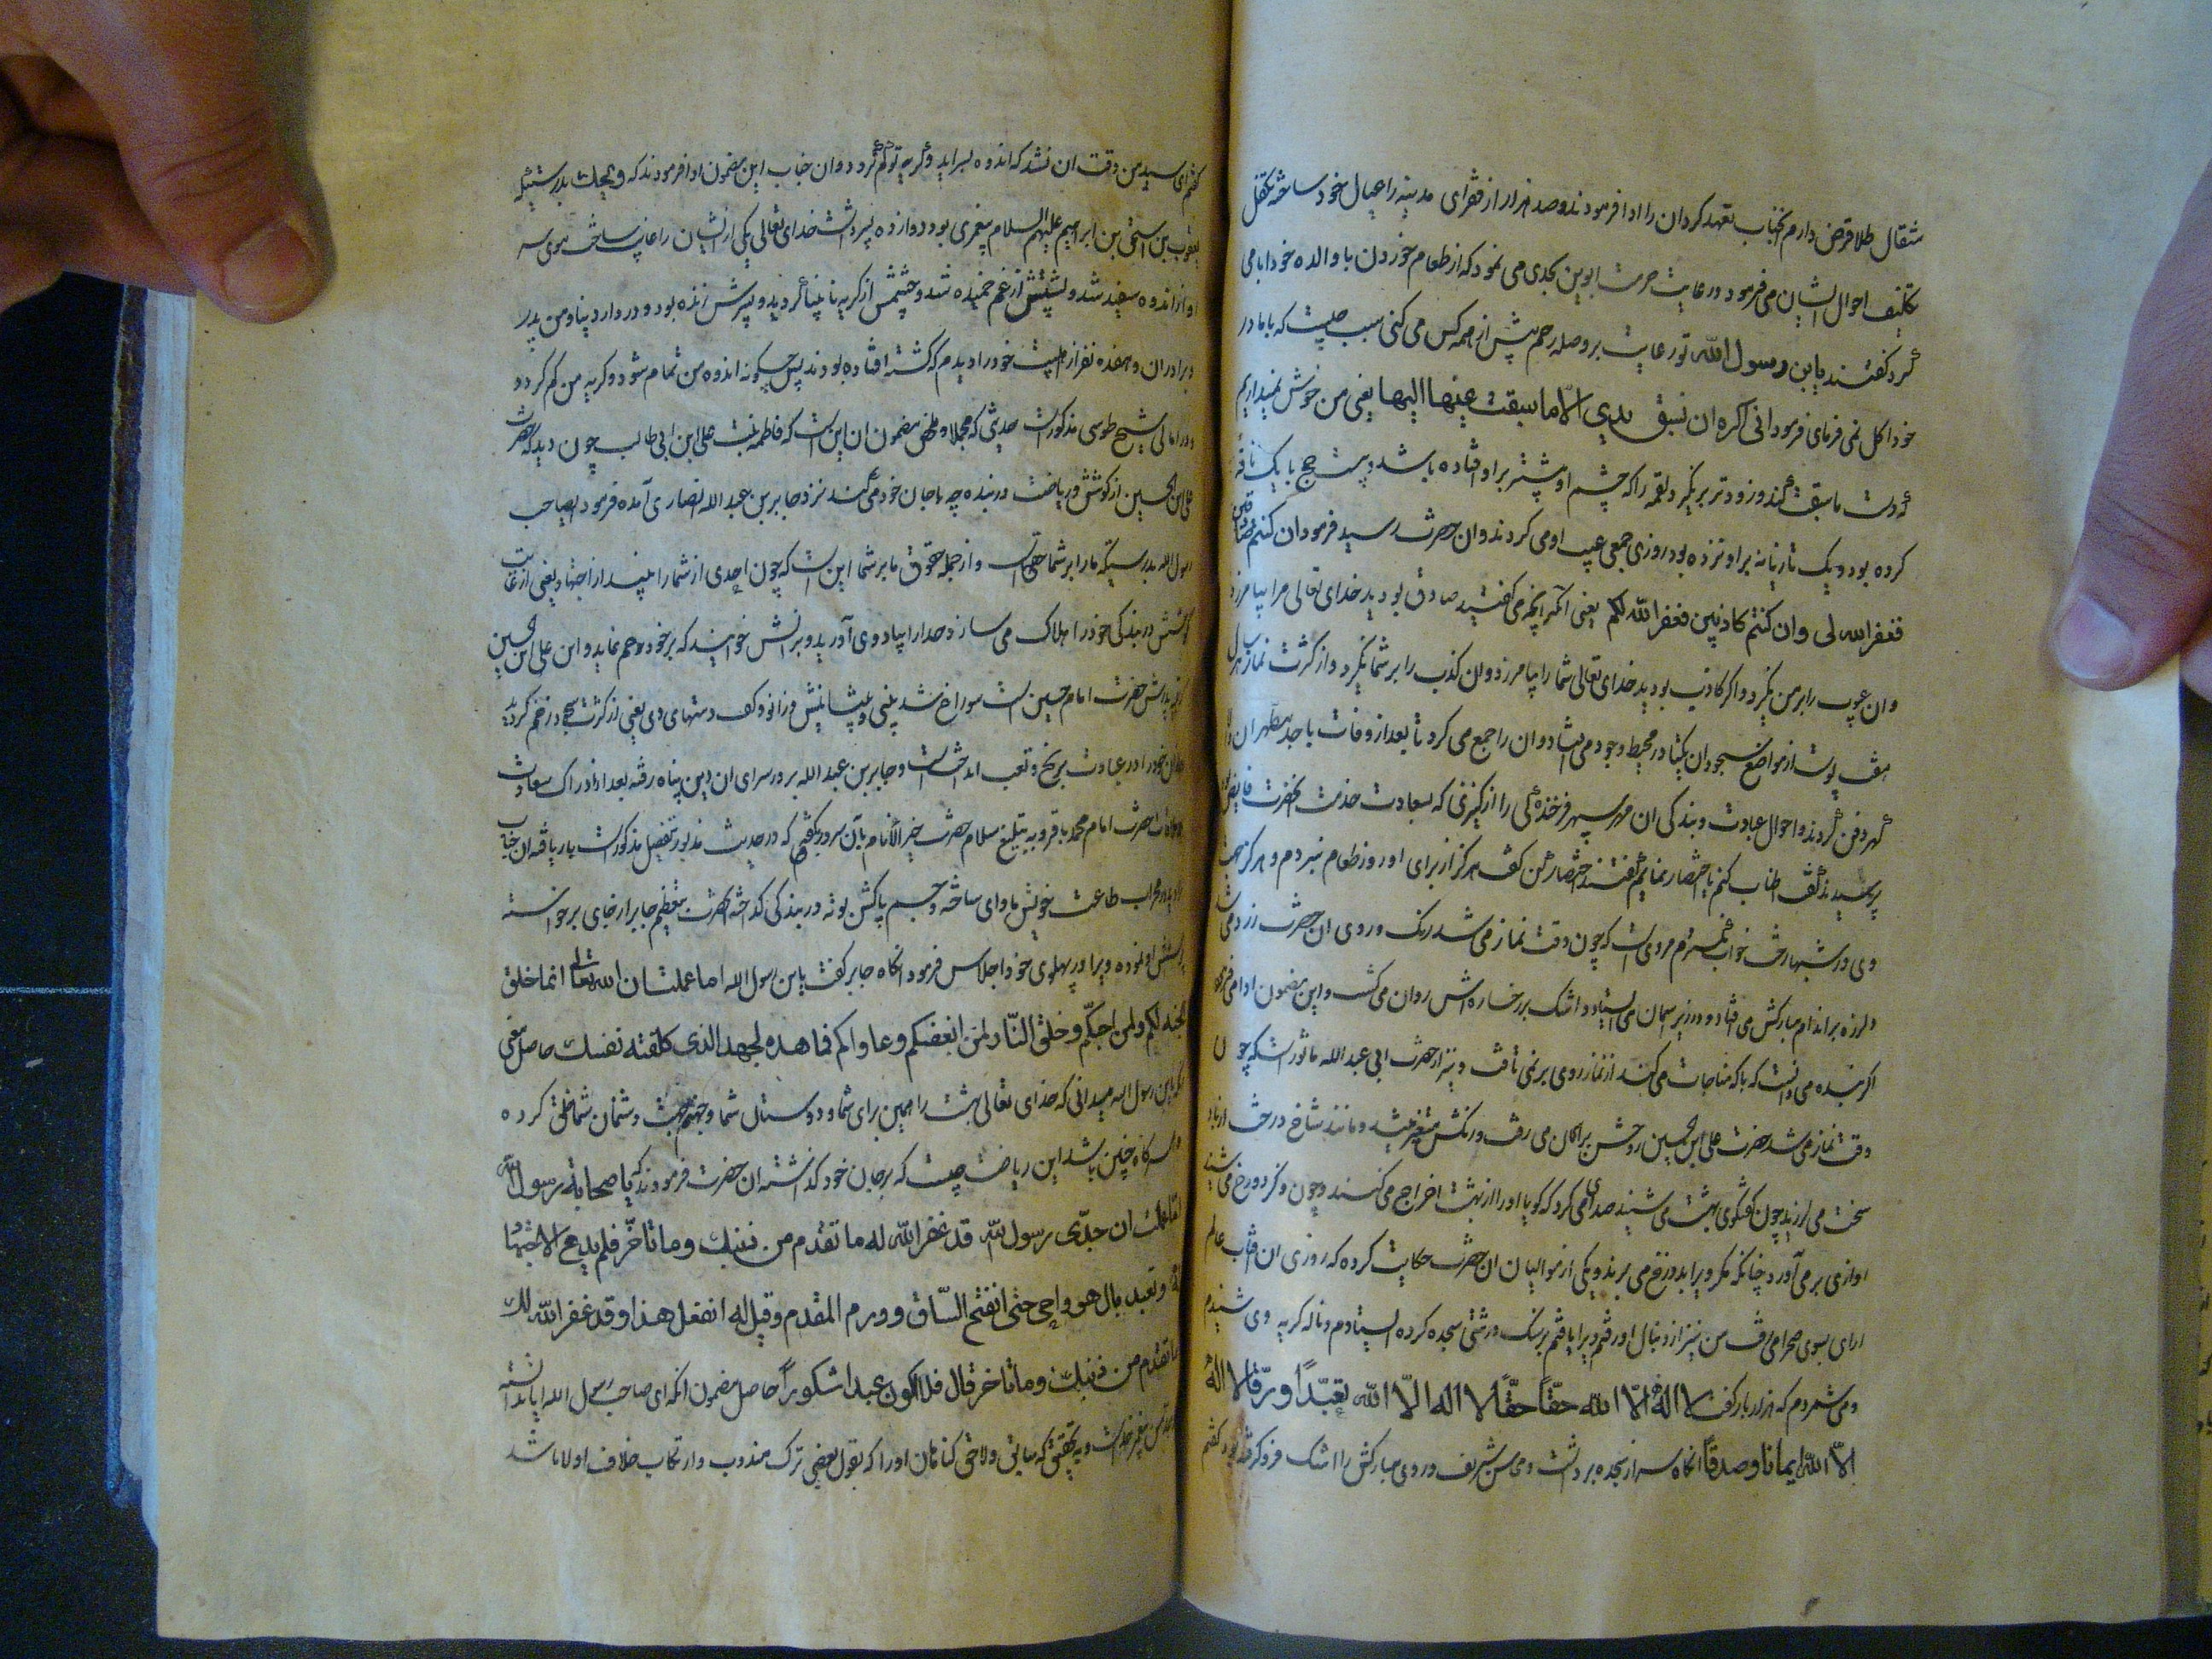 مثقال طلا قرض دارم آنجناب تعهد کردان را ادا فرمودند و صد نفر از فقرای مدینه را عیال خود ساخته تکفل
احوال ایشان می فرمود در عایت حرمت ابوین بحدی می نمود که از طعام خوردن با والده خود ابا می
کرد گفتند یا بن رسول الله تو رعایت بر و صله رحم پیش از همه کس می کنی سبب چیست که با مادر
خود اکل نمی فرمای فرمود انی اکره ان تسبق یدی الا ما سبقت عینها الیها یعنی من خوش نمیدارم
که دست ما سبقت کند و زودتر بر گیرد لقمه را که چشم او پیشتر بر او افتاده باشد بیست حج با یک ناقه
کرده بود و یک تازیانه بر او نزده بود روزی جمعی عیب او می کردند و ان حضرت رسید فرمود ان کنتم صادقین
فغفر الله لی و ان کنتم کاذبین فغفر الله لکم یعنی اگر انچه می گفتید صادق بودید خدای تعالی مرا بیامرزد
و ان عیوب را بر من نگیرد و اگر کاذب بودید خدای تعالی شما را بیامرزد و ان کذب را بر شما نگیرد و از کثرت نماز
پوست از مواضع سجود ان یکتا در محیط وجود می افتاد و ان را جمع می کرد تا بعد از وفات با جسد مطهر ان
گهر دفن کردند و احوال عبادت و بندگی ان مهر سپهر فرخندگی را از کنیزی که بسعادت خدمت آنحضرت
پرسیدند گفت اطناب کنم یا اختصار نمایم گفتند اختصار کن گفت هرگز از برای او روز طعام نبردم و هرگز
وی در شبها رخت خواب نگستردم مرویست که چون وقت نماز می شد رنگ و روی ان حضرت زرد می
و لرزه بر اندام مبارکش می فتاد و در زیر اسمان می ایستاد و اشک بر رخساره اش روان می گشت و این مضمون ادا می
اگر بنده می دانست که با که مناجات می کند از نماز روی بر نمی تافت و نیز از حضرت ابی عبد الله ماثورست که چون
وقت نماز می شد حضرت علی ابن الحسین می رفت و رنگش متغیر میشد و مانند شاخ درخت از باد
سخت می لرزید چون گفتگوی بهشت می شنید صدای می کرد که گویا او را از بهشت اخراج می کنند و چون ذکر دوزخ می شنید
اوازی بر می آورد چنانکه مگر ویرا بدوزخ می برند و یکی از موالیان ان حضرت حکایت کرده که روزی ان افتاب عالم
ارای بسوی صحرا می رفت من نیز از دنبال او رفتم ویرا یافتم بر سنگ درشتی سجده کرده ایستادم و ناله گریه وی شنیدم
و می شمردم که هزار بار گفت لا اله الا الله حقا حقا لا اله الا الله تعبدا ورقا لا اله
الا الله ایمانا وصدقا انگاه سر از سجده برداشت و محاسن شریف و روی مبارکش را اشک فرو گرفته بود گفتم
گفتم ای سید من وقت ان نشد که اندوه بسر اید و گریه تو کم گردد و ان جناب این مضمون ادا فرمودند که ویحک بدرستیکه
یعقوب بن اسحق بن ابراهیم علیهم السلام پیغمبری بود دوازده پسر داشت خدای تعالی یکی از ایشان را غایب ساخت موی سر
او از اندوه سفید شد و پشتش از غم خمیده شد و چشمش از گریه نابینا گردید و پسرش زنده بود در دار دنیا و من پدر
و برادران و هفده نفر از اهلبیت خود را دیدم که کشته افتاده بودند پس چگونه اندوه من تمام شود و گریه من کم گردد
و در امالی شیخ طوسی مذکورست حدیثی که مجملا و ملخص مضمون ان اینست که فاطمه بنت علی ابن ابی طالب چون دید که حضرت
علی ابن الحسین از کوشش و ریاضت در بنده چه با جان خود می کند نزد جابر بن عبد الله انصاری آمده فرمود ایصاحب
رسول الله بدرستیکه ما را بر شما حقهاست و از جمله حقوق ما بر شما اینست که چون احدی از شما را ببیند از اجتهاد یعنی از غایت
کوشش در بندگی خود را هلاک می سازد خدا را بیاد وی آورید و بر انش خوانید که بر خود رحم نماید و این علی ابن الحسین
پدرش حضرت امام حسین است سوراخ شد بینی و پیشانیش و زانو و کف دستهای وی یعنی از کثرت سجود زخم گردید
خود را در عبادت برنج و تعب انداخت و جابر بن عبد الله بر در سرای ان دین پناه رفته بعد از ادراک سعادت
حضرت امام محمد باقر و بتبلیغ سلام حضرت خیر الانام بآن سرور بنحوی که در حدیث مذبور بتفصیل مذکورست بار یافته ان جناب
محراب طاعت خویش ماوای ساخته و جسم پاکش بوته در بندگی گداخته انحضرت بتعظیم جابر از جای برخواسته
پرسش او نموده ویرا در پهلوی خود اجلاس فرمود انگاه جابر گفت یا بن رسول الله اما علمت ان الله تعالی انما خلق
الجنه لکم ولمن احبکم وخلق النار لمن ابغضکم وعاداکم فما هذه الجهد الذی کلفته نفسک حاصل معنی
انکه یا بن رسول الله میدانی که خدای تعالی بهشت را همین برای شما و دوستان شما و جهنم جهت دشمنان شما خلق کرده
هر گاه چنین باشد این ریاضت چیست که بر جان خود گذاشته ان حضرت فرمودند که یا صحابة رسول الله
اما علمت ان جدی رسول الله قد غفر الله له ما تقدم من ذنبک وما تاخر فلم یدع الاجتهاد
له وتعبد بابی هو وامی حتی انتفخ الساق وورم المقدم وقیل له اتفعل هذا وقد غفر الله لک
ما تقدم من ذنبک وما تاخر قال فلا اکون عبدا شکورا حاصل مضمون انکه ای صاحب رسول الله ایا ندانسته
پیغمبر خداست و بتحقیق که سابق و لاحق گناهان او را که بقول بعضی ترک مندوب و ارتکاب خلاف اولا باشد